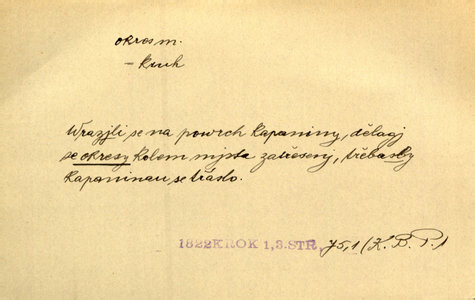 okres m.
- kruh
Wrazjli se na powrch kapaniny, dělagj
se okresy kolem mjsta zatřesenj, třebas by
kapaninau se třáslo.
1822 KROK 1, 3. STR. 75, 1 (K. B. P.)